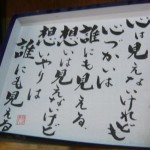 心は見えないけれども
心づかいは
誰にも見える
想いは見えないけど
想いやりは
誰にも見える